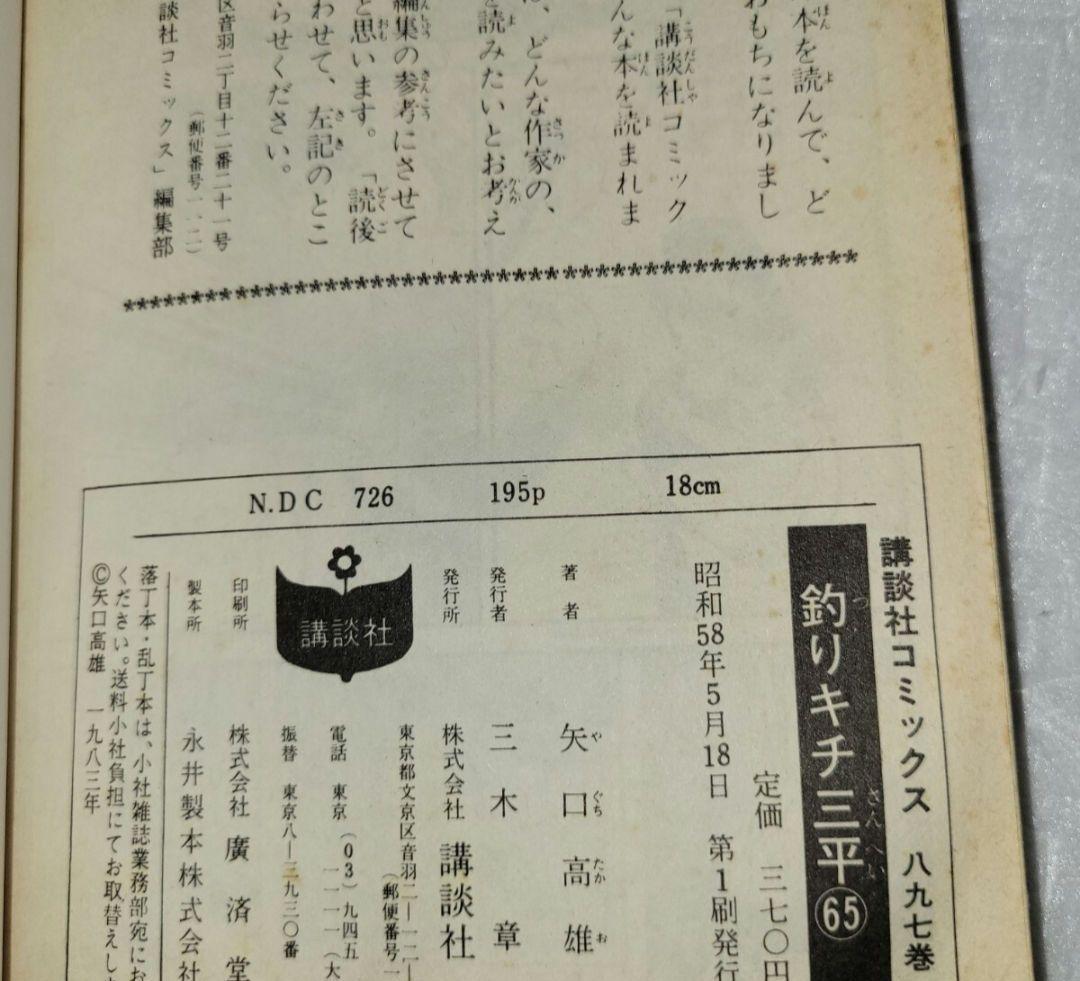 本を読んで、ど
おもちになりまし
「講談社コミック
んな本を読まれま
は、どんな作家の、
を読みたいとお考え
編集の参考にさせて
と思います。「読後
わせて、左記のとこ
らせください。
区音羽二丁目十二番二十一号
(郵便番号一一二)
談社コミックス」編集部
N.DC 726 195p 18cm
講談社コミックス 八九七巻
釣りキチ三平65
定価 三七〇円
昭和58年5月18日 第1刷発行
著者 矢口高雄
発行者 三木章
発行所 株式会社 講談社
東京都文京区音羽二―一二―
(郵便番号一
電話 東京(03)九四五
一一一一(大
振替 東京八―三九三〇番
講談社
印刷所 株式会社 廣済堂
製本所 永井製本株式会社
落丁本・乱丁本は、小社雑誌業務部宛にお
ください。送料小社負担にてお取替えし
©矢口高雄 一九八三年